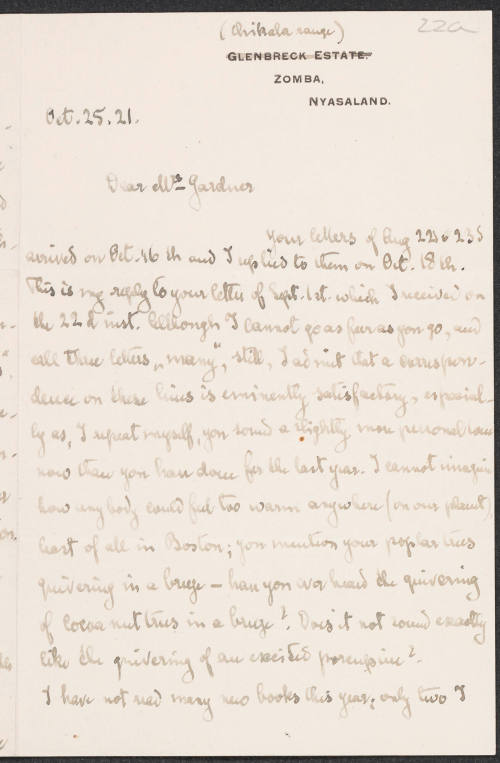 22a
(Chikala range)
GLENBRECK ESTATE.
ZOMBA,
NYASALAND.
Oct. 25. 21.
Dear Mrs Gardner
Your letters of Aug 22d & 23d
arrived on Oct. 16th and I replied to them on Oct. 18th.
This is my reply to your letter of Sept. 1st. which I received on
the 22d inst. Although I cannot go as far as you go, and
call three letters "many", still, I admit that a correspon-
dence on these lines is eminently satisfactory, especial-
ly as, I repeat myself, you sound a slightly more personal
now than you have done for the last year. I cannot imagine
how anybody could feel too warm anywhere (on our planet)
least of all in Boston; you mention your poplar trees
quivering in a breeze – have you ever heard the quivering
of cocoa nut trees in a breeze? Does it not sound exactly
like the quivering of an excited porcupine?
I have not read many new books this year; only two I